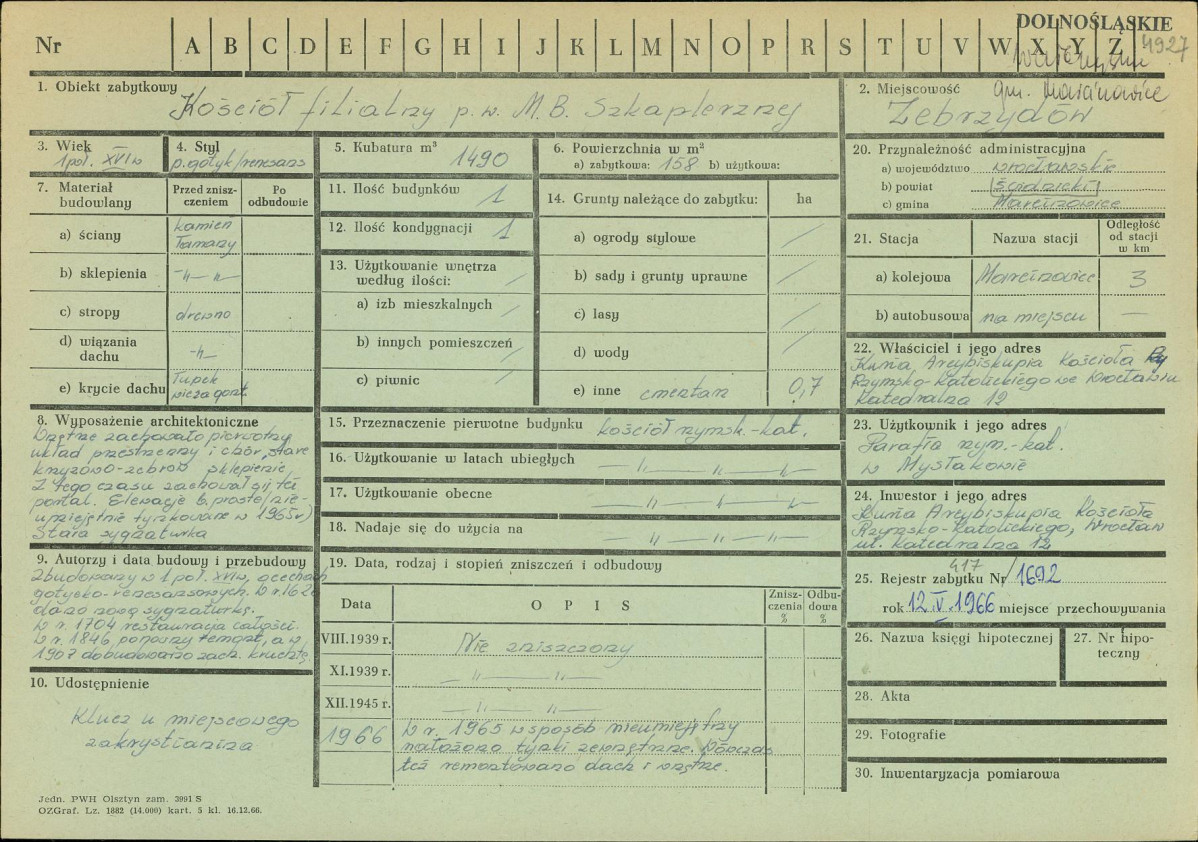 DOLNOŚLĄSKIE
Nr A B C D E F G H I J K L M N O P R S T U V W X Y Z 4927
1. Obiekt zabytkowy
Kościół filialny p.w. M.B. Szkaplerznej
2. Miejscowość gm. Marcinowice
Zebrzydów
3. Wiek
1 poł. XVI w
4. Styl
p. gotyk/renesans
5. Kubatura m³ 1490
6. Powierzchnia w m²
a) zabytkowa: 158 b) użytkowa:
20. Przynależność administracyjna
a) województwo wrocławskie
b) powiat (świdnicki)
c) gmina Marcinowice
7. Materiał budowlany
Przed zniszczeniem
Po odbudowie
a) ściany kamień łamany
b) sklepienia -"- "-
c) stropy drewno
d) wiązania dachu -"-
e) krycie dachu łupek wieża gont
11. Ilość budynków 1
12. Ilość kondygnacji 1
13. Użytkowanie wnętrza według ilości:
a) izb mieszkalnych /
b) innych pomieszczeń /
c) piwnic /
14. Grunty należące do zabytku: ha
a) ogrody stylowe /
b) sady i grunty uprawne /
c) lasy /
d) wody /
e) inne cmentarz 0,7
21. Stacja Nazwa stacji Odległość od stacji w km
a) kolejowa Marcinowice 3
b) autobusowa na miejscu —
22. Właściciel i jego adres
Kuria Arcybiskupia Kościoła
Rzymsko-Katolickiego we Wrocławiu
Katedralna 12
8. Wyposażenie architektoniczne
Wnętrze zachowało pierwotny
układ przestrzenny i chór, stare
krzyżowo-żebrow sklepienie,
Z tego czasu zachował się też
portal. Elewacje b. proste/nie-
umiejętnie tynkowane w 1965r)
Stara sygnaturka
15. Przeznaczenie pierwotne budynku kościół rzymsk.-kat.
16. Użytkowanie w latach ubiegłych -"- -"- -"-
17. Użytkowanie obecne -"- -"- -"-
18. Nadaje się do użycia na -"- -"- -"-
23. Użytkownik i jego adres
Parafia rzym.-kat.
w Mysłakowie
24. Inwestor i jego adres
Kuria Arcybiskupia Kościoła
Rzymsko-Katolickiego, Wrocław
ul. Katedralna 12
9. Autorzy i data budowy i przebudowy
Zbudowany w 1 poł. XVI w, o cechach
gotycko-renesansowych. W r. 162
dano nową sygnaturkę.
W r. 1704 restauracja całości.
W r. 1846 ponowny remont, a w
1907 dobudowano zach. kruchtę.
10. Udostępnienie
Klucz u miejscowego
zakrystianina
19. Data, rodzaj i stopień zniszczeń i odbudowy
Data OPIS Zniszczenia % Odbudowa %
VIII.1939 r. Nie zniszczony
XI.1939 r. -"- -"-
XII.1945 r. -"- -"-
1966 W r. 1965 w sposób nieumiejętny
nałożono tynki zewnętrzne. Wówczas
też remontowano dach i wnętrze.
417
25. Rejestr zabytku Nr/1692
rok 12.V.1966 miejsce przechowywania
26. Nazwa księgi hipotecznej
27. Nr hipoteczny
28. Akta
29. Fotografie
30. Inwentaryzacja pomiarowa
Jedn. PWH Olsztyn zam. 3991 S
OZGraf. Lz. 1882 (14.000) kart. 5 kl. 16.12.66.